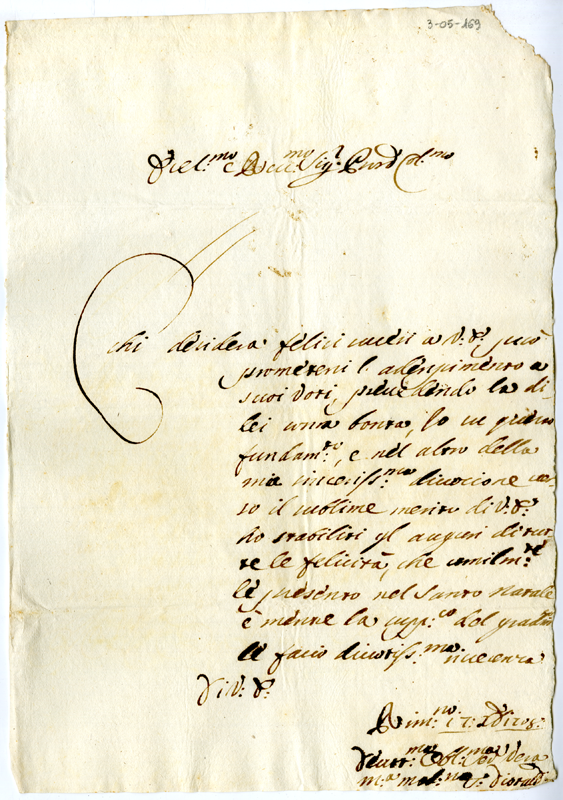 3-05-169
e Sig.r
chi desidera felici successi a V: S: può
prometersi l'adempimento a
suoi voti, precedendo la di
lei somma bontà, Io su questo
fundam.to, e nel altro della
mia sinceriss.ma divocione ver
so il sublime merito di V: S:
ho stabiliti gl'auguri di tut
te le felicità, che umilm.te
le presento nel Santo Natale
e mentre la supp.co del
le faccio divotiss.ma riverenza
Di V: S: